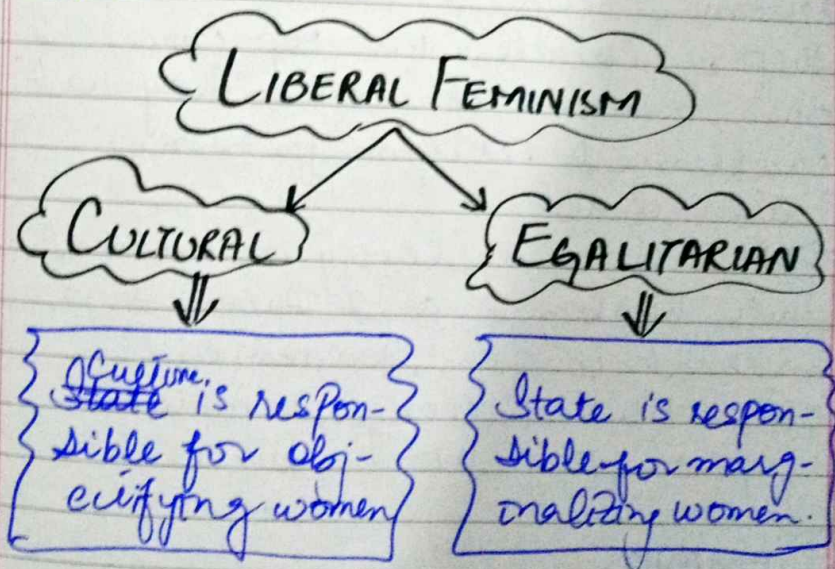 LIBERAL FEMINISM
CULTURAL
EGALITARIAN
Culture
State is respon-
sible for obj-
ectifying women
State is respon-
sible for marg-
inalizing women.